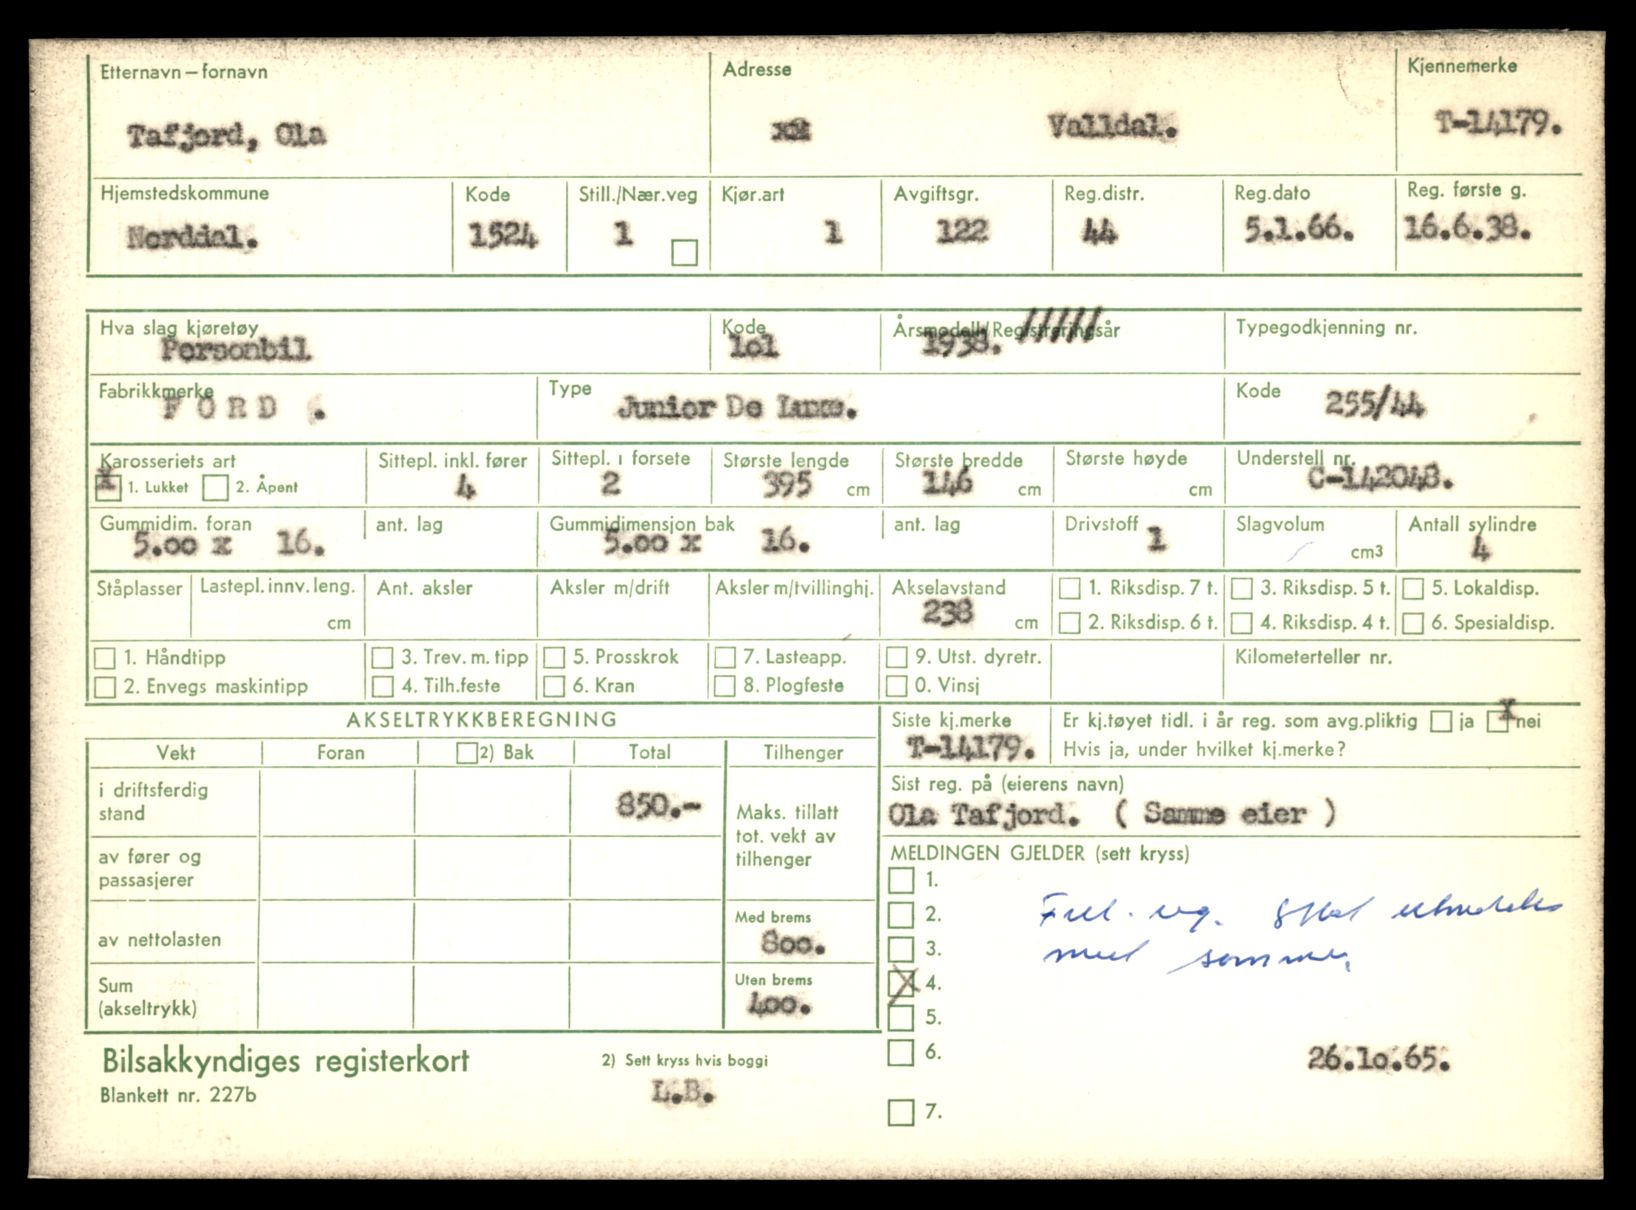 Etternavn – fornavn Adresse Kjennemerke
Tafjord, Ola Valldal. T-14179.
Hjemstedskommune Kode Still./Nær.veg Kjør.art Avgiftsgr. Reg.distr. Reg.dato Reg. første g.
Norddal. 1524 1 1 122 44 5.1.66. 16.6.38.
Hva slag kjøretøy Kode Årsmodell/Registreringsår Typegodkjenning nr.
Personbil 1o1 1938. /////
Fabrikkmerke Type Kode
F O R D . Junior De Luxe. 255/44
Karosseriets art Sittepl. inkl. fører Sittepl. i forsete Største lengde Største bredde Største høyde Understell nr.
x 1. Lukket 2. Åpent 4 2 395 cm 146 cm cm C-142048.
Gummidim. foran ant. lag Gummidimensjon bak ant. lag Drivstoff Slagvolum Antall sylindre
5.oo x 16. 5.oo x 16. 1 cm3 4
Ståplasser Lastepl. innv. leng. Ant. aksler Aksler m/drift Aksler m/tvillinghj. Akselavstand 1. Riksdisp. 7 t. 3. Riksdisp. 5 t. 5. Lokaldisp.
cm 238 cm 2. Riksdisp. 6 t. 4. Riksdisp. 4 t. 6. Spesialdisp.
1. Håndtipp 3. Trev. m. tipp 5. Prosskrok 7. Lasteapp. 9. Utst. dyretr. Kilometerteller nr.
2. Envegs maskintipp 4. Tilh.feste 6. Kran 8. Plogfeste 0. Vinsj
AKSELTRYKKBEREGNING Siste kj.merke Er kj.tøyet tidl. i år reg. som avg.pliktig ja x nei
Vekt Foran 2) Bak Total Tilhenger T-14179. Hvis ja, under hvilket kj.merke?
i driftsferdig stand 850.-
Maks. tillatt tot. vekt av tilhenger
Sist reg. på (eierens navn)
Ola Tafjord. ( Samme eier )
av fører og passasjerer
MELDINGEN GJELDER (sett kryss)
1.
2.
3.
4.
5.
6.
7.
reg.
med sommer
av nettolasten Med brems
8oo.
Sum (akseltrykk) Uten brems
4oo.
26.1o.65.
Bilsakkyndiges registerkort 2) Sett kryss hvis boggi
Blankett nr. 227b L.B.